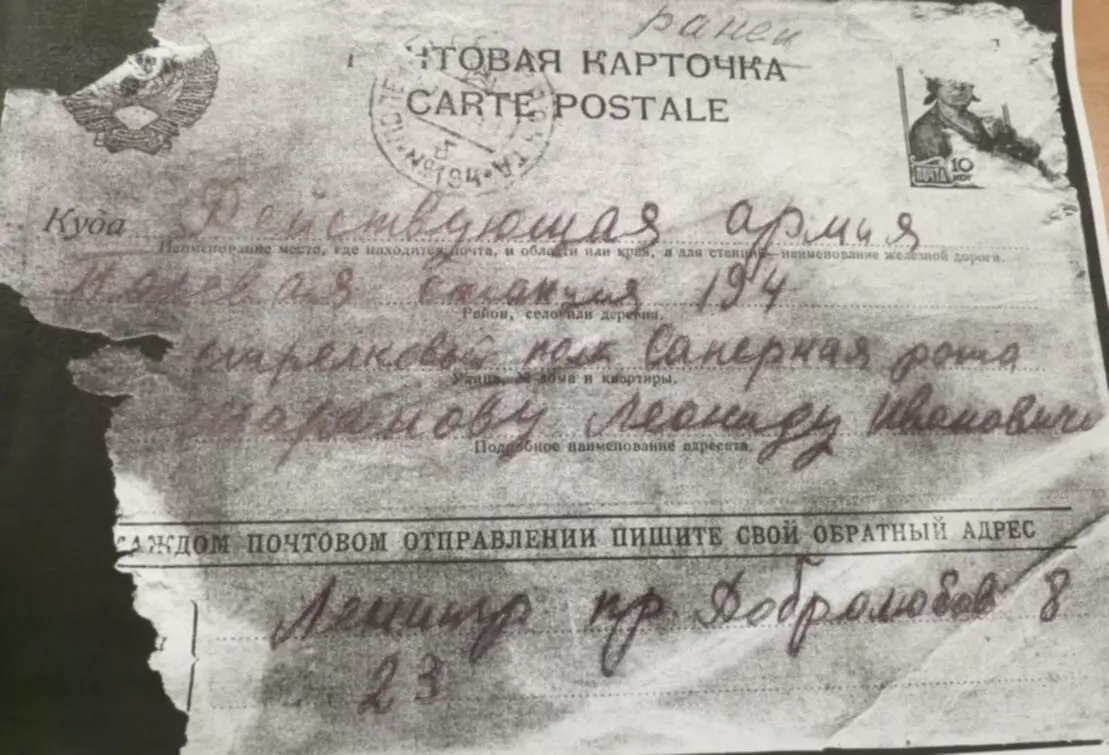 ранен
ЧТОВАЯ КАРТОЧКА
CARTE POSTALE
ПОЧТА 10 КОП
Куда Действующая армия
Наименование места, где находится почта, и области или края, а для станций—наименование железной дороги.
Полевая станция 194
Район, село или деревня.
стрелковый полк Саперная рота
Улица, № дома и квартиры.
Леониду Ивановичу
Подробное наименование адресата.
КАЖДОМ ПОЧТОВОМ ОТПРАВЛЕНИИ ПИШИТЕ СВОЙ ОБРАТНЫЙ АДРЕС
Ленингр пр Добролюбов 8
23